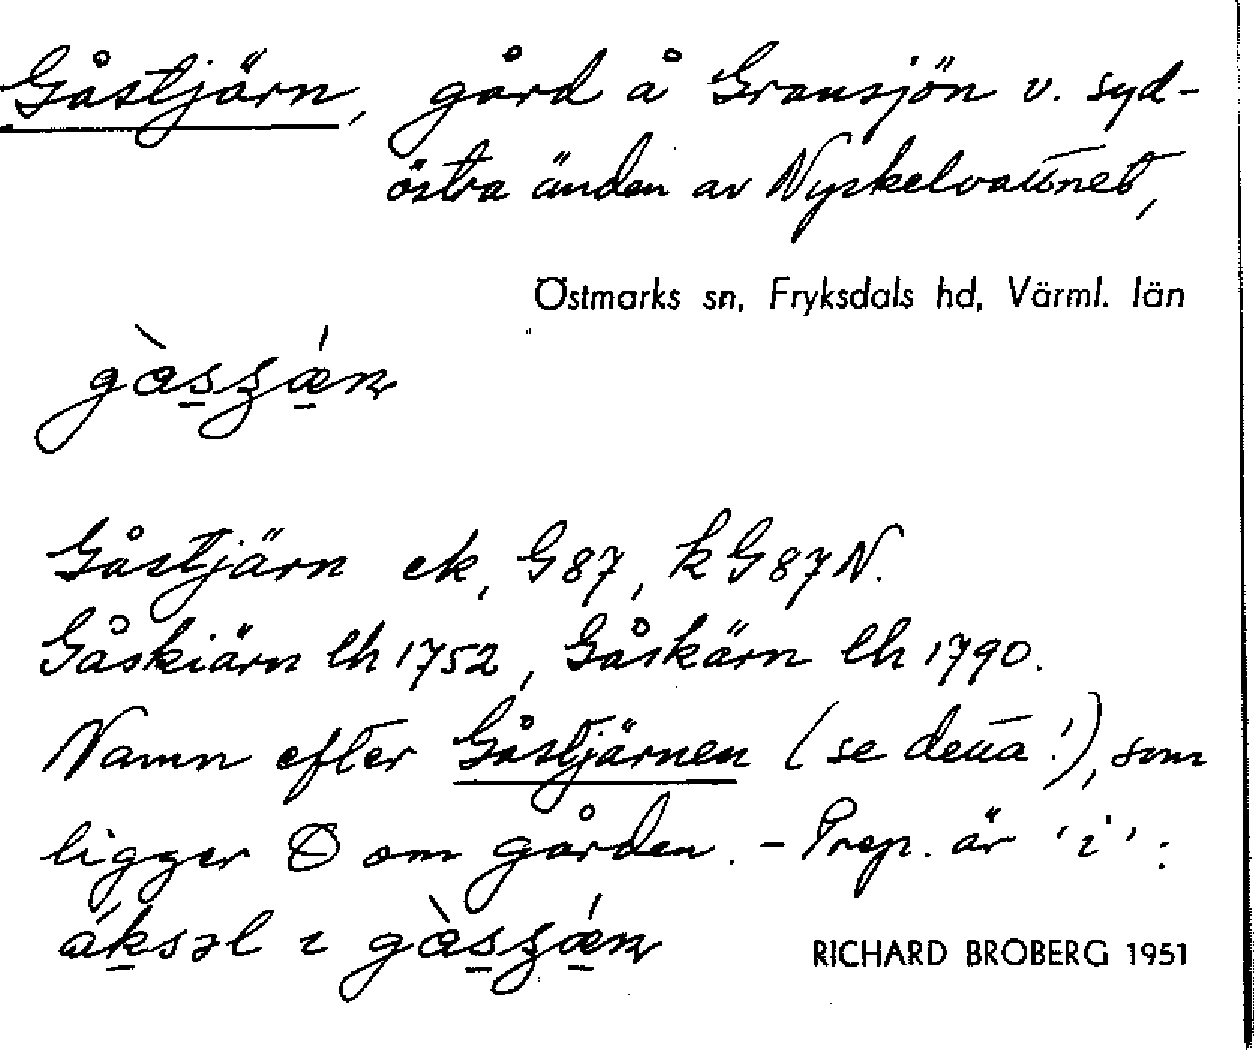 Gåstjärn, gård å Gransjön v. syd-
östra änden av Nyckelvattnet,
Östmarks sn, Fryksdals hd, Värml. län
Gåstjärn ek, G87, kG87N.
Gåskiärn lh 1752, Gåskärn lh 1790.
Namn efter Gåstjärnen (se denna!), som
ligger Ö om gården. – Prep. är 'i':
RICHARD BROBERG 1951